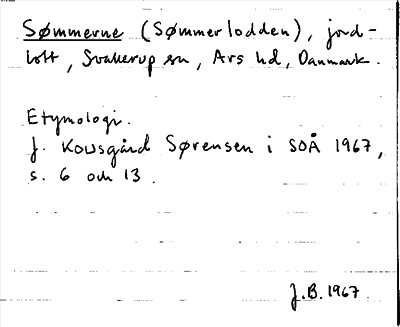 Sømmerne (Sømmerlodden), jord-
lott, Svallerup sn, Ars hd, Danmark.
Etymologi.
J. Kousgård Sørensen i SOÅ 1967,
s. 6 och 13.
J.B. 1967